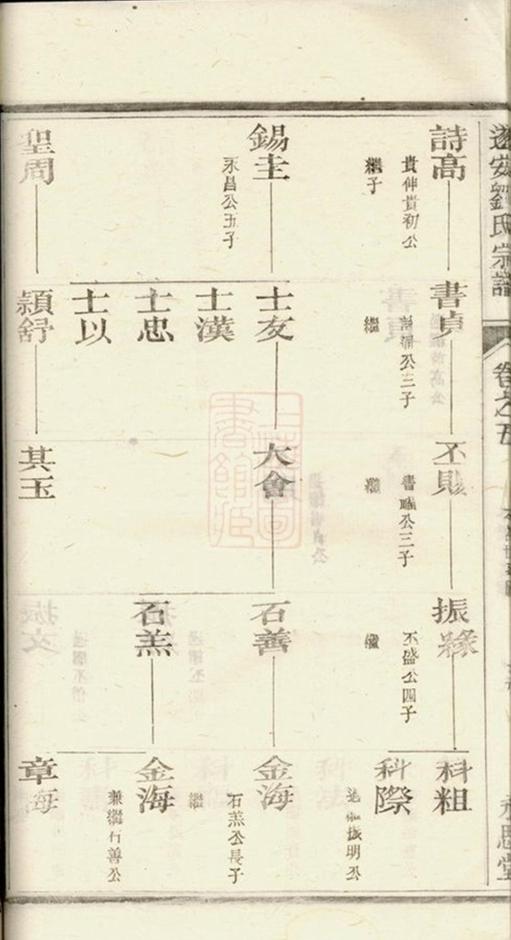 遂安劉氏宗譜
卷之五
永思堂
詩高
貴伸貴初公
繼子
錫圭
永昌公五子
聖周
書貞
公三子
繼
士友
士漢
士忠
士以
穎舒
丕
書
公三子
繼
大會
其玉
振
丕盛公四子
繼
石善
石羔
科粗
科際
振明公
金海
石羔公長子
繼
金海
兼繼石善公
章海